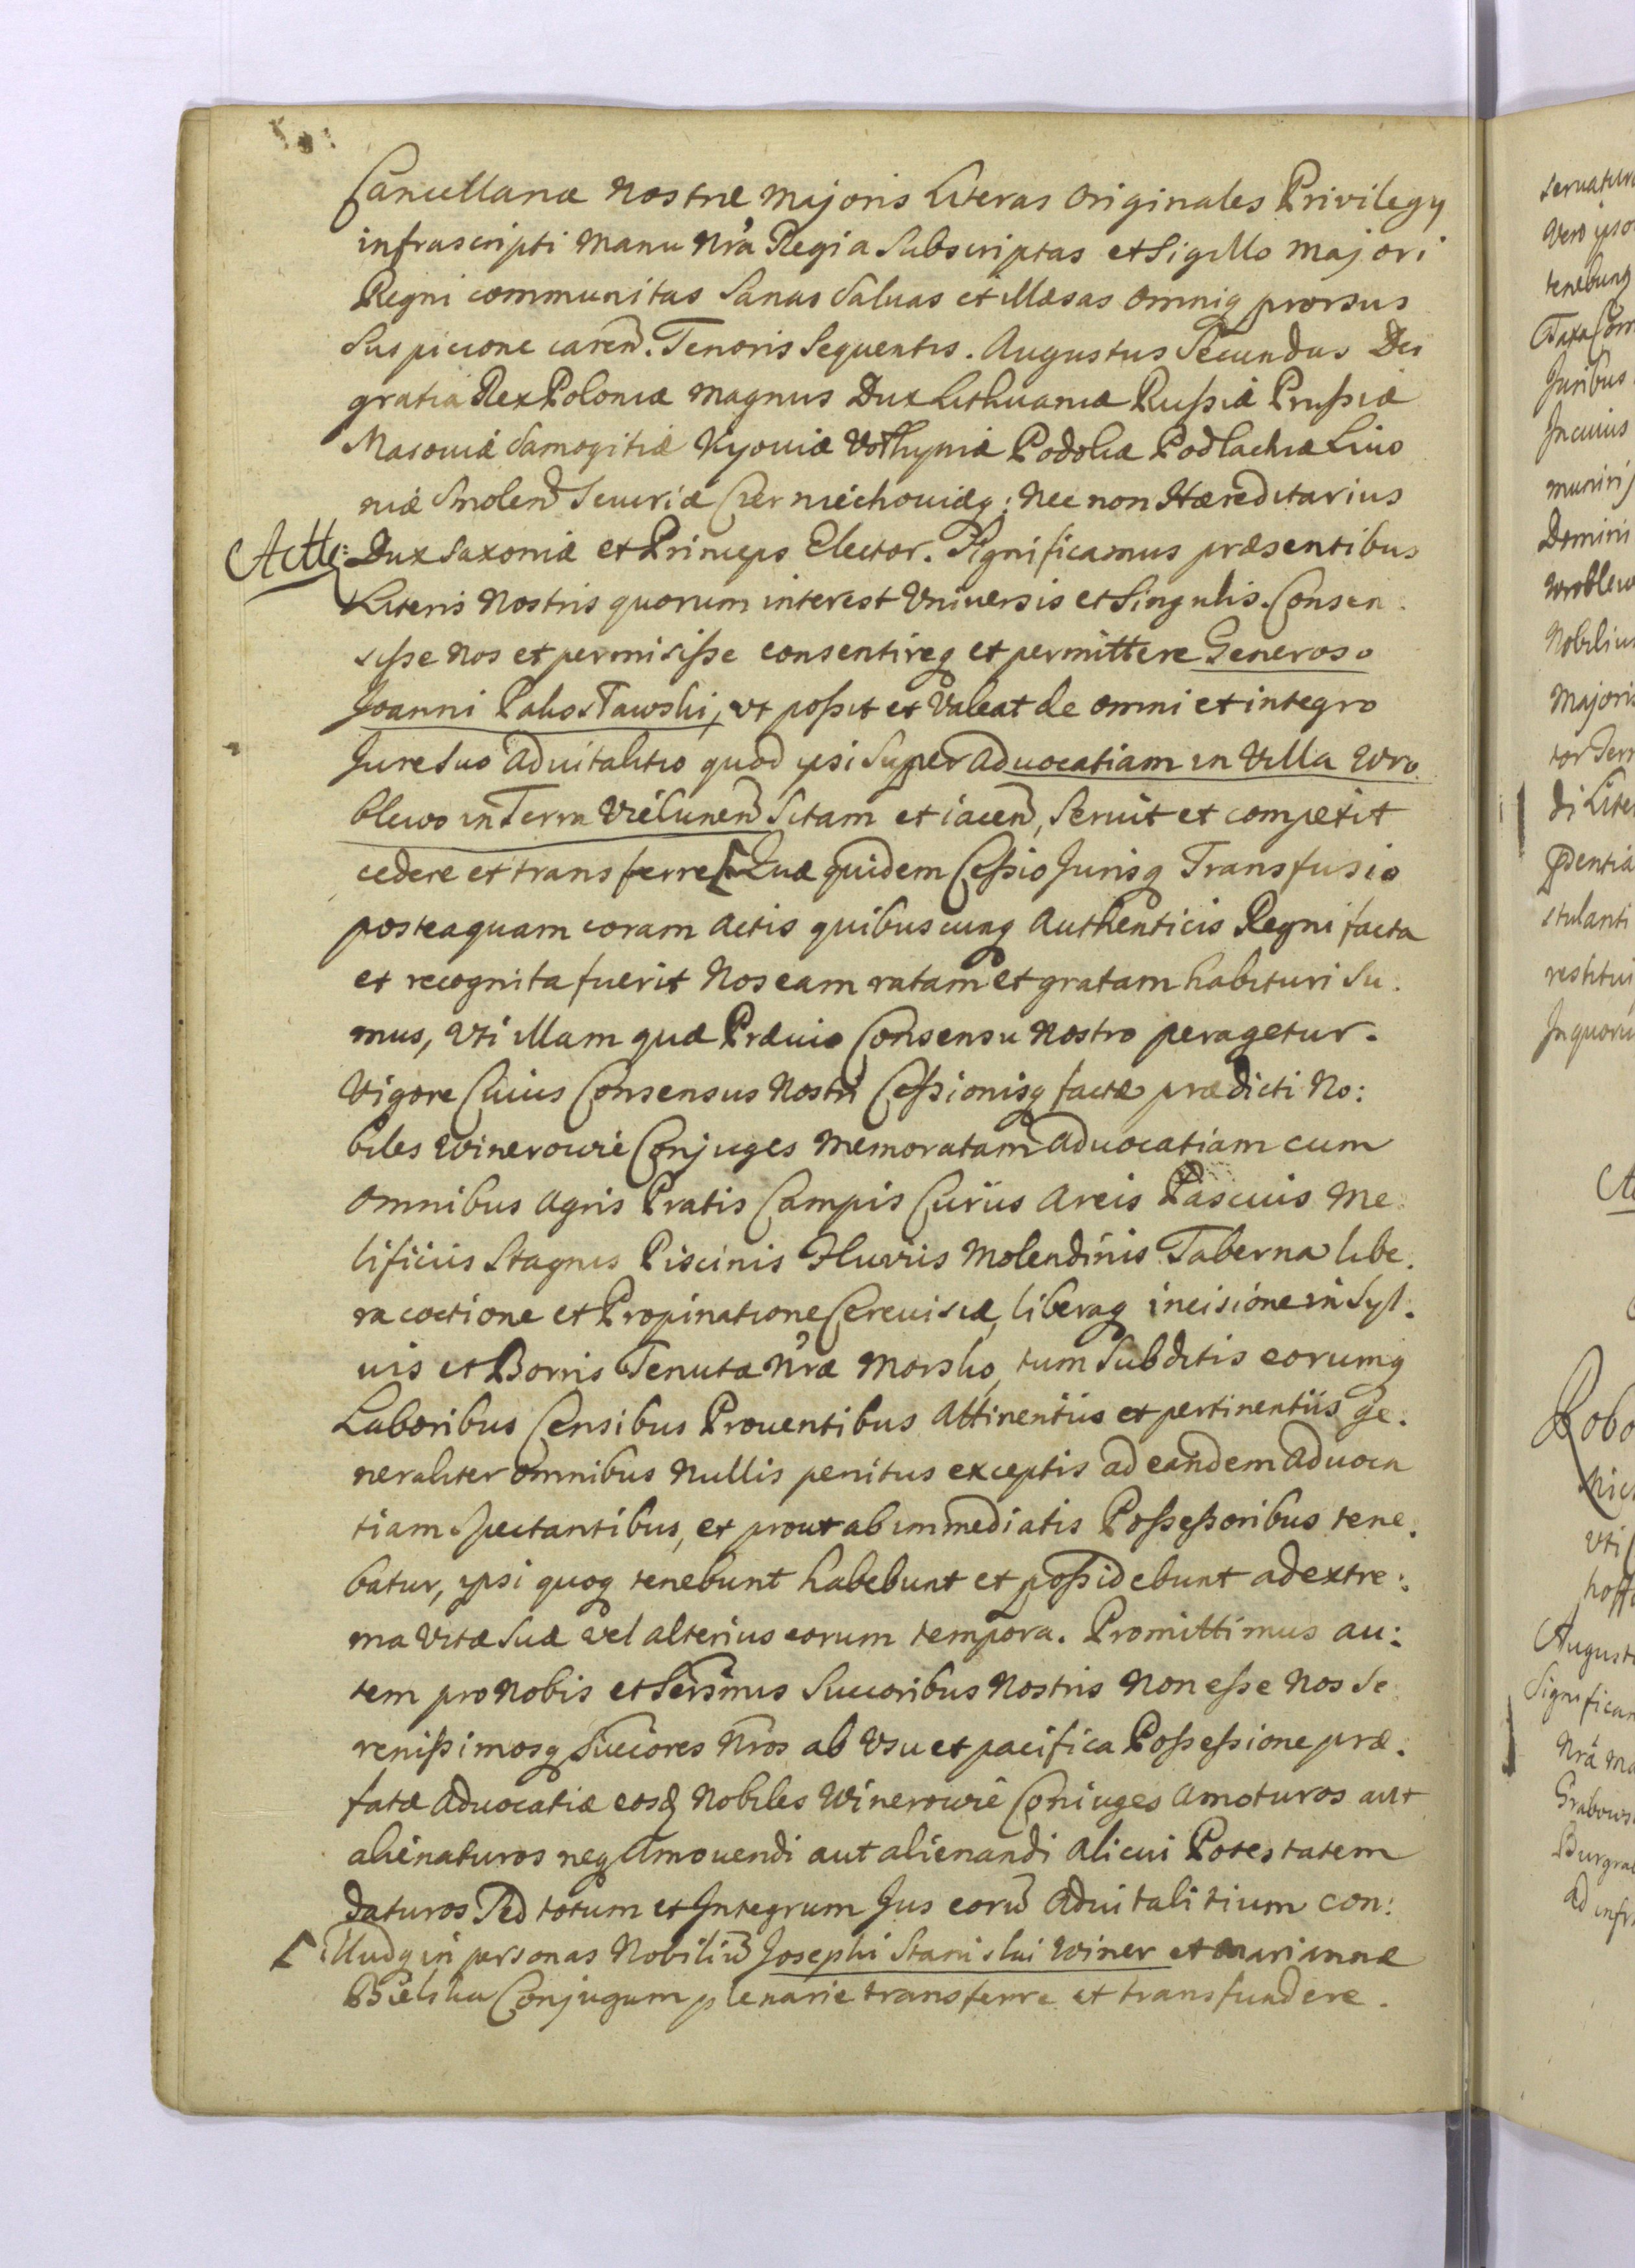 Cancellariæ Nostræ Majoris Literas Originales Privilegÿ
infrascripti Manu Nrâ Regia Subscriptas et Sigillo Majori
Regni communitas Sanas Saluas et illæsas Omniq prorsus
Suspicione caren. Tenoris Sequentis. Augustus Secundus Dei
gratia Rex Poloniæ Magnus Dux Lithuaniæ Rußiæ Prußiæ
Masouiæ Samogitiæ Kyouiæ Volhyniæ Podoliæ Podlachiæ Liuo
niæ Smolen Seueriæ Czerniechouiæq: Nec non Hæreditarius
Dux Saxoniæ et Princeps Elector. Significamus præsentibus
Literis Nostris quorum interest Vniuersis et Singulis. Consen:
siße Nos et permisiße consentireq et permittere Generoso
Joanni Vt poßit et Valeat de Omni et integro
Jure Suo Aduitalitio quod ypsi Super Aduocatiam in Villa Wro
blewo in Terra Vielunen Sitam et iacen, Seruit et competit
cedere et transferre [Quæ quidem Ceßio Jurisq Transfusio
posteaquam coram Actis quibuscunq Authenticis Regni facta
et recognita fuerit Nos eam ratam et gratam habituri Su:
mus, Vti illam quæ Præuio Consensu Nostro peragetur.
Vigore Cuius Consensus Nostri Ceßionisq factæ prædicti No:
biles Winerowie Conjuges Memoratam Aduocatiam cum
Omnibus Agris Pratis Campis Curiis Areis Pascuis Me
lificiis Stagnis Piscinis Fluviis Molendinis Taberna libe.
ra coctione et Propinatione Cereuisiæ, liberaq incisione in Syl.
uis et Borris Tenutæ Nræ Morsko, tum Subditis eorumq
Laboribus Censibus Prouentibus Attinentiis et pertinentiis ge.
neraliter omnibus Nullis penitus exceptis ad eandem Aduoca
tiam Spectantibus, et prout ab immediatis Poßeßoribus tene.
batur, ypsi quoq tenebunt habebunt et poßidebunt ad extre:
ma Vitæ Suæ vel alterius eorum tempora. Promittimus au:
tem pro Nobis et Serismis Succoribus Nostris Non eße Nos Se
renißimosq Succores Nros ab Vsu et pacifica Poßeßione præ.
fatæ Aduocatiæ eosd Nobiles Winerowie Coniuges Amoturos aut
alienaturos neq Amouendi aut alienandi Alicui Potestatem
daturos Sed totum et Integrum Jus eorum Aduitalitium con:
[Illudq in personas Nobilium Josephi Stanislai Winer et Mariannæ
Bielska Conjugum plenarie transferre et transfundere.